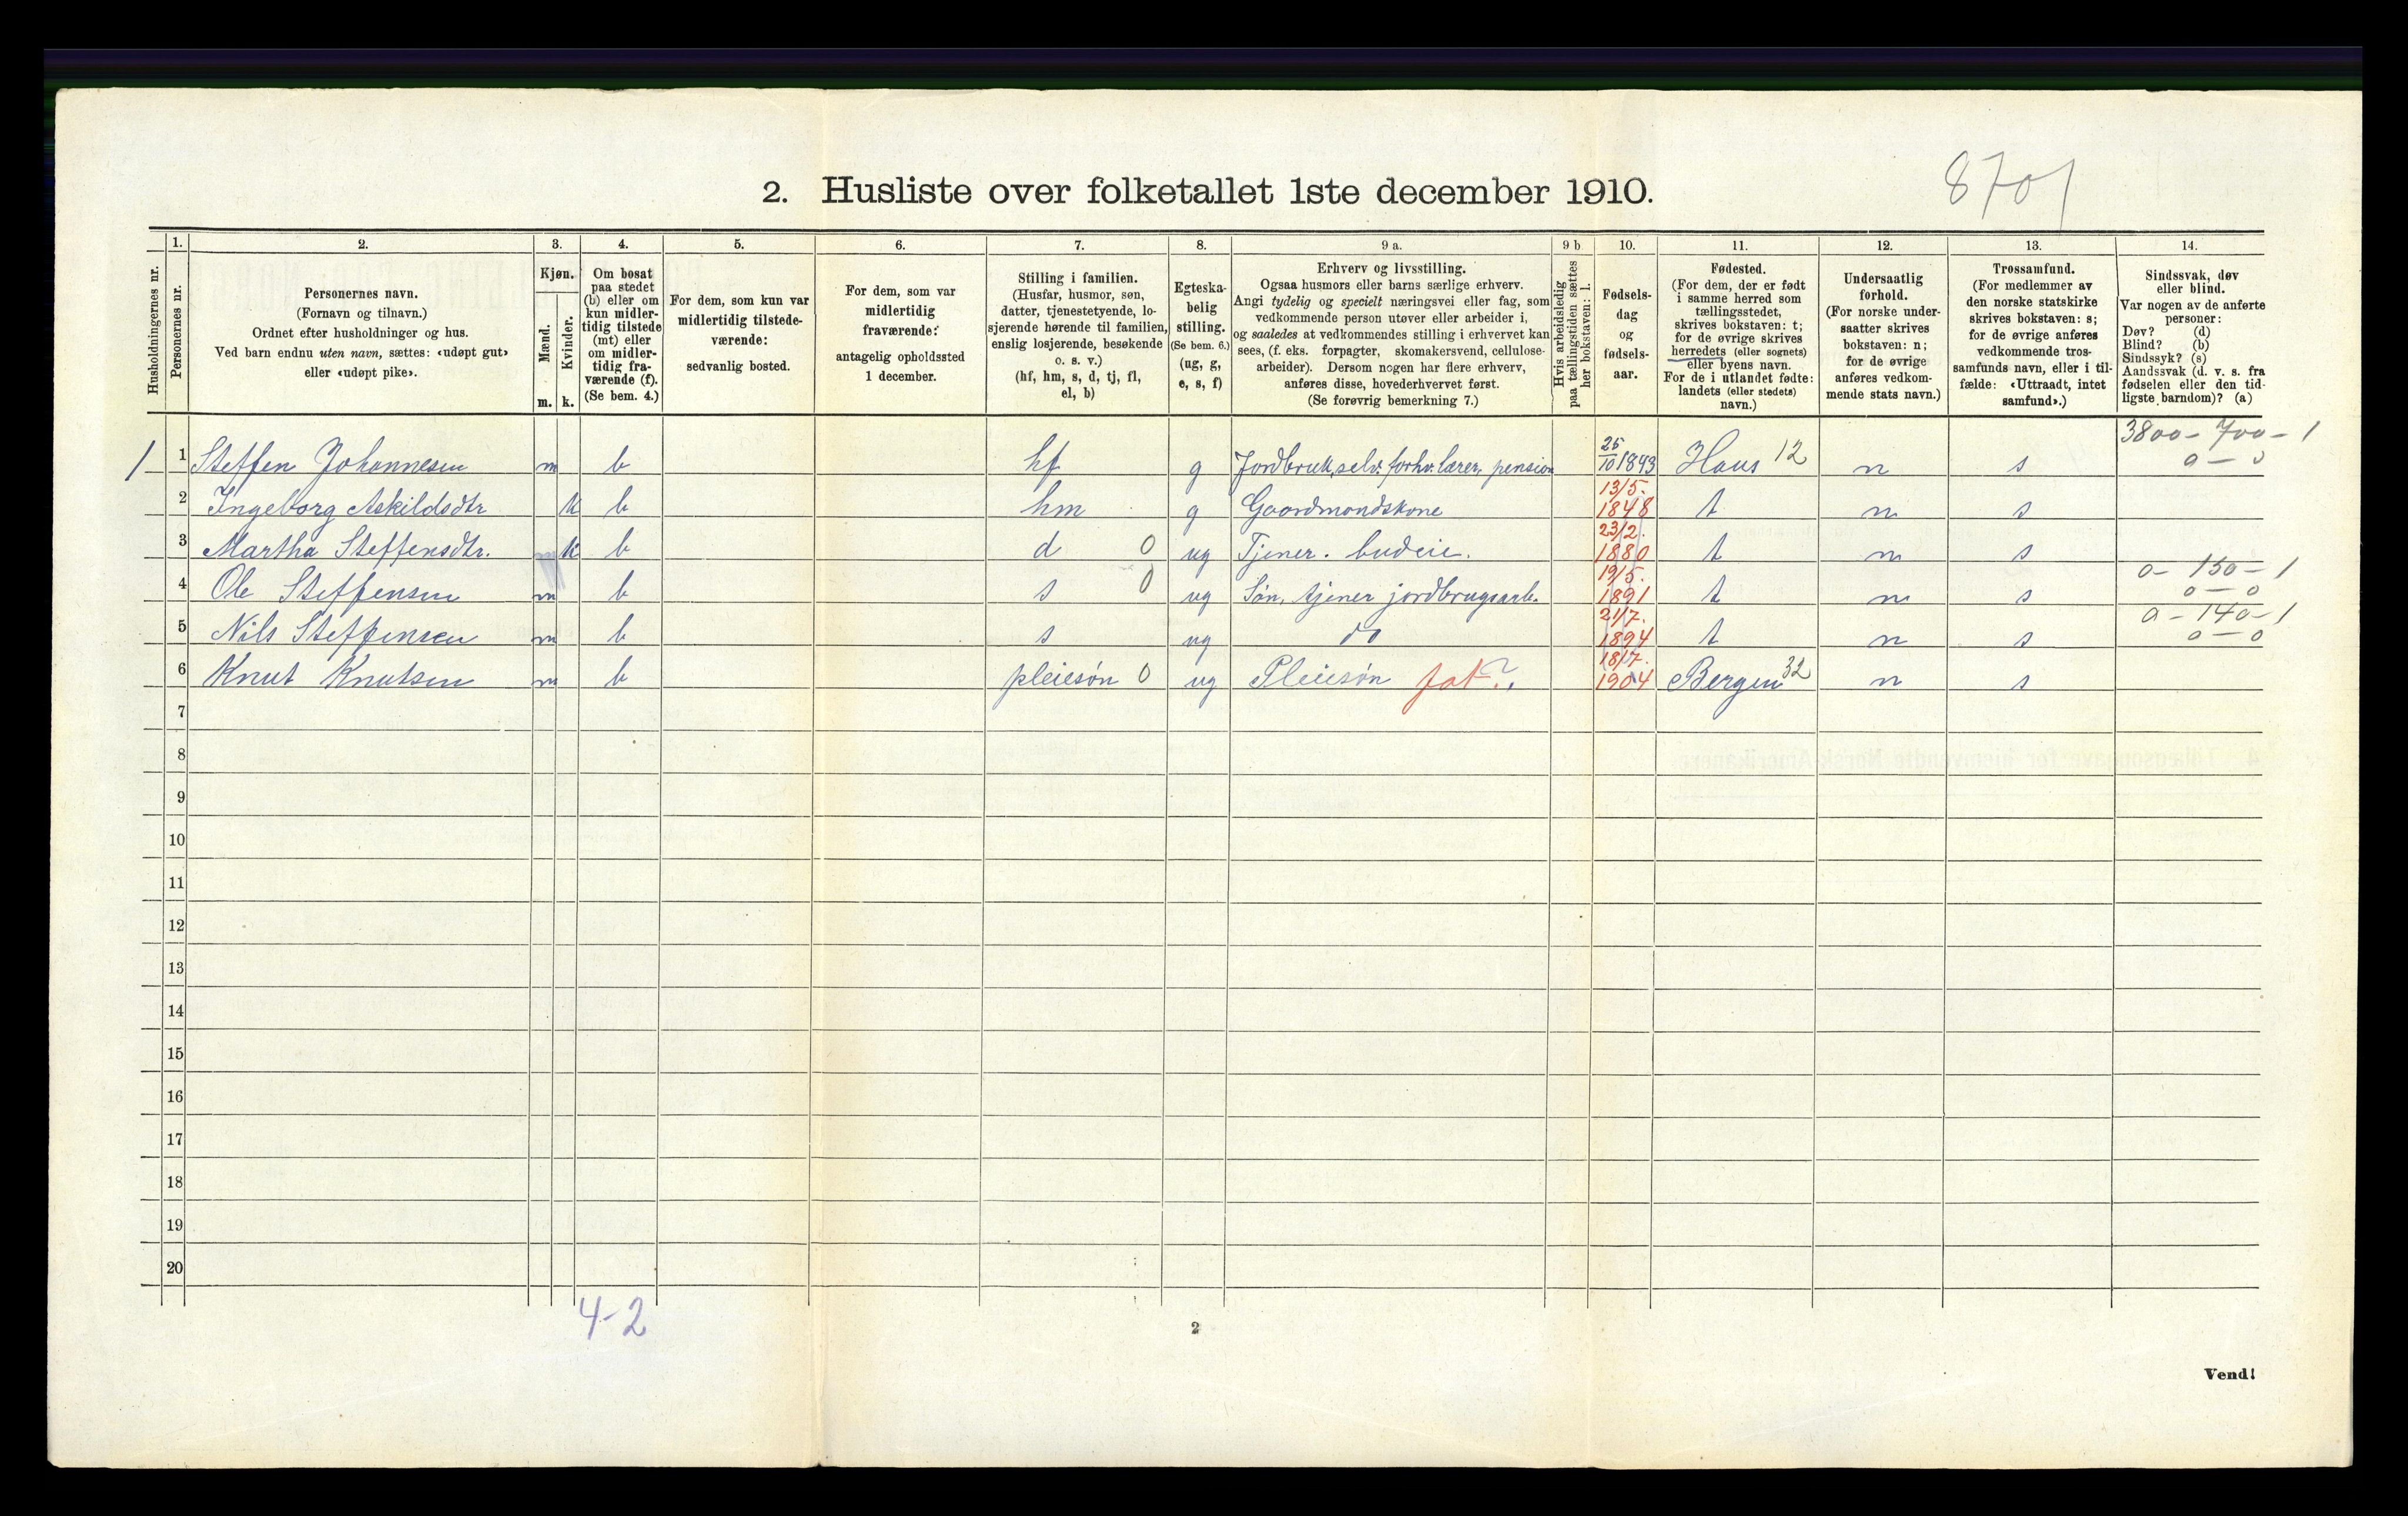 2. Husliste over folketallet 1ste december 1910.
8701
Husholdningernes nr.
1. Personernes nr.
2. Personernes navn.
(Fornavn og tilnavn.)
Ordnet efter husholdninger og hus.
Ved barn endnu uten navn, sættes: «udøpt gut»
eller «udøpt pike».
3. Kjøn.
Mænd. m.
Kvinder. k.
4. Om bosat
paa stedet
(b) eller om
kun midler-
tidig tilstede
(mt) eller
om midler-
tidig fra-
værende (f).
(Se bem. 4.)
5. For dem, som kun var
midlertidig tilstede-
værende:
sedvanlig bosted.
6. For dem, som var
midlertidig
fraværende:
antagelig opholdssted
1 december.
7. Stilling i familien.
(Husfar, husmor, søn,
datter, tjenestetyende, lo-
sjerende hørende til familien,
enslig losjerende, besøkende
o. s. v.)
(hf, hm, s, d, tj, fl,
el, b)
8. Egteska-
belig
stilling.
(Se bem. 6.)
(ug, g,
e, s, f)
9 a. Erhverv og livsstilling.
Ogsaa husmors eller barns særlige erhverv.
Angi tydelig og specielt næringsvei eller fag, som
vedkommende person utøver eller arbeider i,
og saaledes at vedkommendes stilling i erhvervet kan
sees, (f. eks. forpagter, skomakersvend, cellulose-
arbeider). Dersom nogen har flere erhverv,
anføres disse, hovederhvervet først.
(Se forøvrig bemerkning 7.)
9 b Hvis arbeidsledig
paa tællingstiden sættes
her bokstaven: l.
10. Fødsels-
dag
og
fødsels-
aar.
11. Fødested.
(For dem, der er født
i samme herred som
tællingsstedet,
skrives bokstaven: t;
for de øvrige skrives
herredets (eller sognets)
eller byens navn.
For de i utlandet fødte:
landets (eller stedets)
navn.)
12. Undersaatlig
forhold.
(For norske under-
saatter skrives
bokstaven: n;
for de øvrige
anføres vedkom-
mende stats navn.)
13. Trossamfund.
(For medlemmer av
den norske statskirke
skrives bokstaven: s;
for de øvrige anføres
vedkommende tros-
samfunds navn, eller i til-
fælde: «Uttraadt, intet
samfund».)
14. Sindssvak, døv
eller blind.
Var nogen av de anførte
personer:
Døv? (d)
Blind? (b)
Sindssyk? (s)
Aandssvak (d. v. s. fra
fødselen eller den tid-
ligste barndom)? (a)
3800 - 700 - 1
1 1 Steffen Johannesen m b hf g Jordbruk, selv. forhv. lærer, pension 25/10 1843 Haus 12 n s 0 - 0
2 Ingeborg Askildsdtr k b hm g Gaardmandskone 13/5. 1848 t n s
3 Martha Steffensdtr. k b d 0 ug Tjener. budeie. 23/2. 1880 t n s
0 - 150 - 1
4 Ole Steffensen m b s 0 ug Søn, tjener jordbrugsarb. 19/5. 1891 t n s 0 - 0
0 - 140 - 1
5 Nils Steffensen m b s ug do 21/7. 1894 t n s 0 - 0
6 Knut Knutsen m b pleiesøn 0 ug Pleiesøn fat? 18/7. 1904 Bergen 32 n s
7
8
9
10
11
12
13
14
15
16
17
18
19
20
4-2
2
Vend!